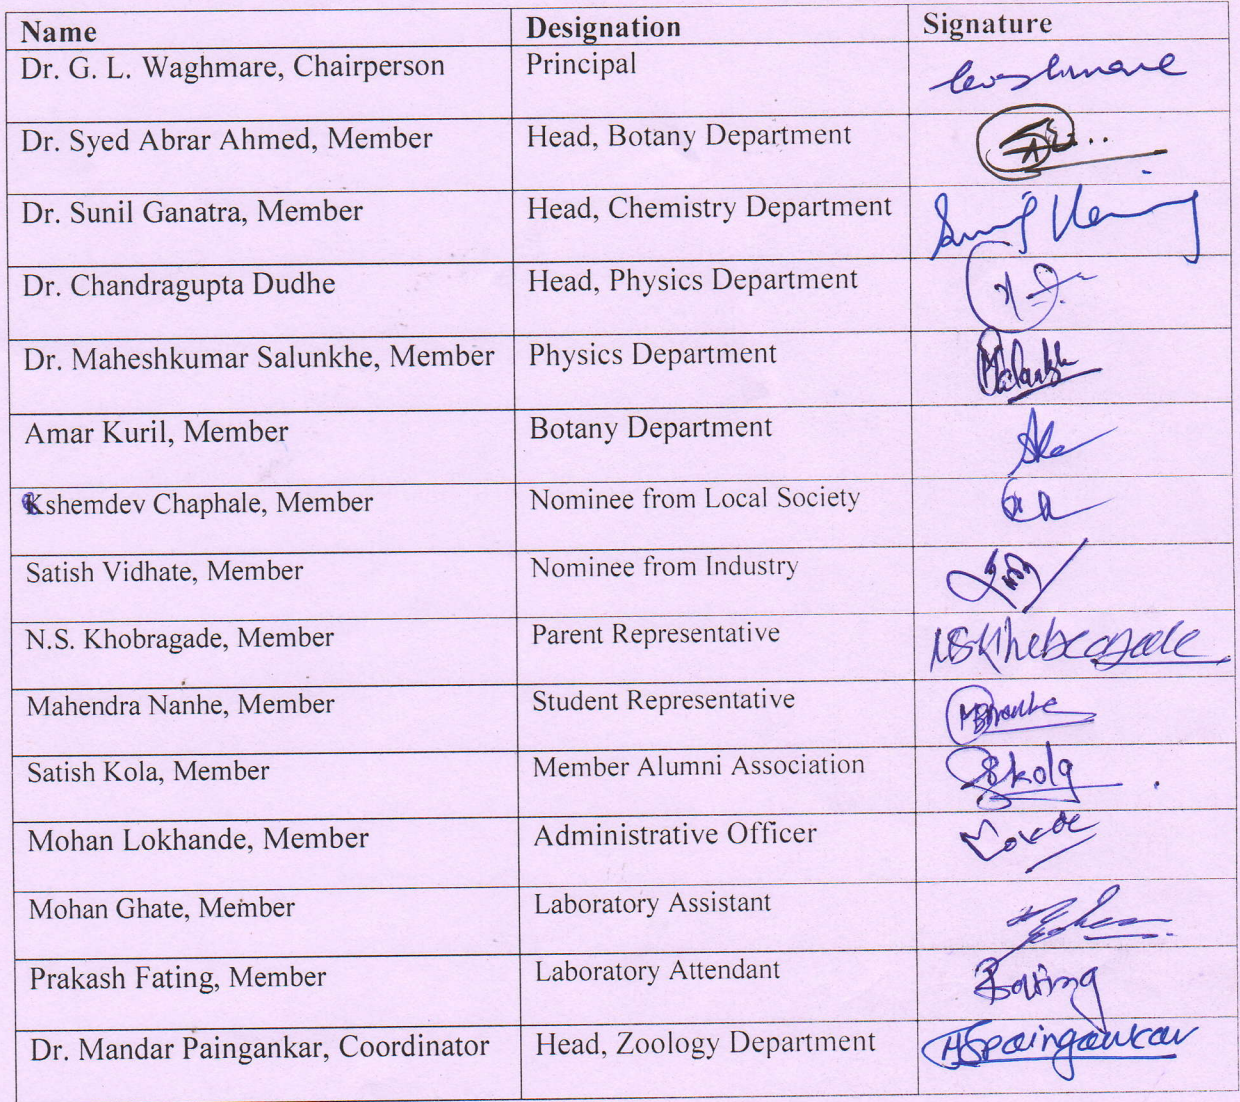 Name Designation Signature
Dr. G. L. Waghmare, Chairperson Principal
Dr. Syed Abrar Ahmed, Member Head, Botany Department
Dr. Sunil Ganatra, Member Head, Chemistry Department
Dr. Chandragupta Dudhe Head, Physics Department
Dr. Maheshkumar Salunkhe, Member Physics Department
Amar Kuril, Member Botany Department
Kshemdev Chaphale, Member Nominee from Local Society
Satish Vidhate, Member Nominee from Industry
N.S. Khobragade, Member Parent Representative
Mahendra Nanhe, Member Student Representative
Satish Kola, Member Member Alumni Association Skola
Mohan Lokhande, Member Administrative Officer
Mohan Ghate, Member Laboratory Assistant
Prakash Fating, Member Laboratory Attendant
Dr. Mandar Paingankar, Coordinator Head, Zoology Department